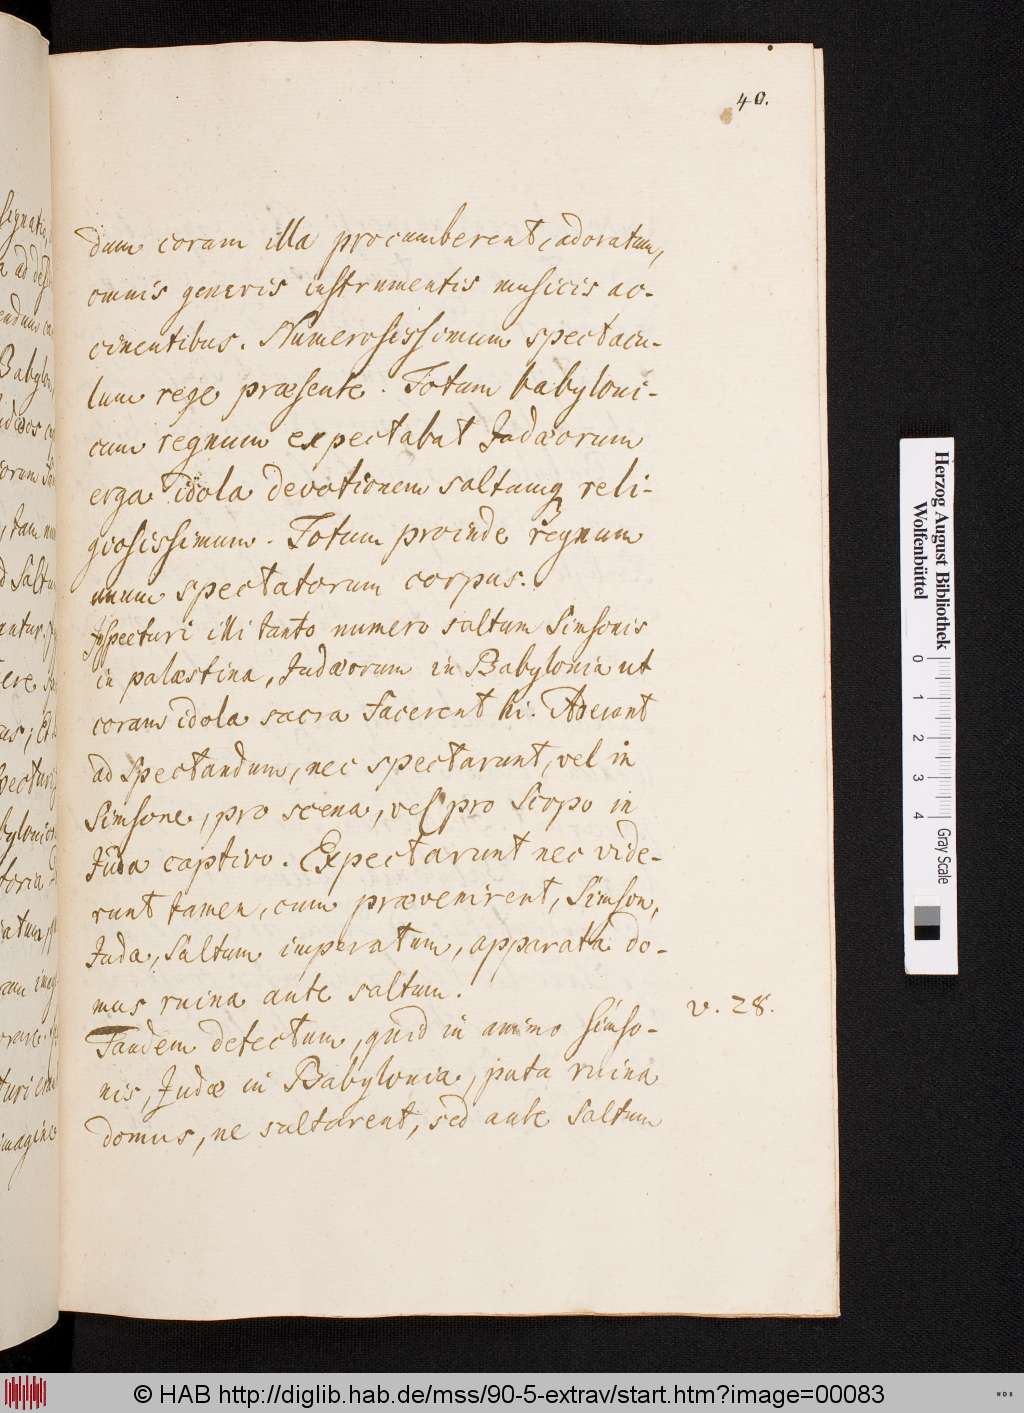 40.
dum coram illa procumberent, adoratum,
omnis generis instrumentis musicis ac-
cinentibus. Numerosissimum spectacu-
lum rege præsente. Totum babyloni-
cum regnum expectabat Judæorum
erga idola devotionem saltumq reli-
giosissimum. Totum proinde regnum
unum spectatorum corpus.
Inspecturi illi tanto numero saltum Simsonis
in palæstina, Judæorum in Babylonia ut
coram idola sacra facerent hi. Aderant
ad spectandum, nec spectarunt, vel in
Simsone, pro scena, vel pro scopo in
Juda captivo. Expectarunt nec vide-
runt tamen, cum prævenirent, Simson,
Juda, saltum imperatum, apparatâ do-
mus ruina ante saltum.
v. 28.
Tandem detectum, quid in animo Simso-
nis, Judæ in Babylonia, puta ruina
domus, ne saltarent, sed ante saltum
Herzog August Bibliothek
Wolfenbüttel
0 1 2 3 4
Gray Scale
© HAB http://diglib.hab.de/mss/90-5-extrav/start.htm?image=00083